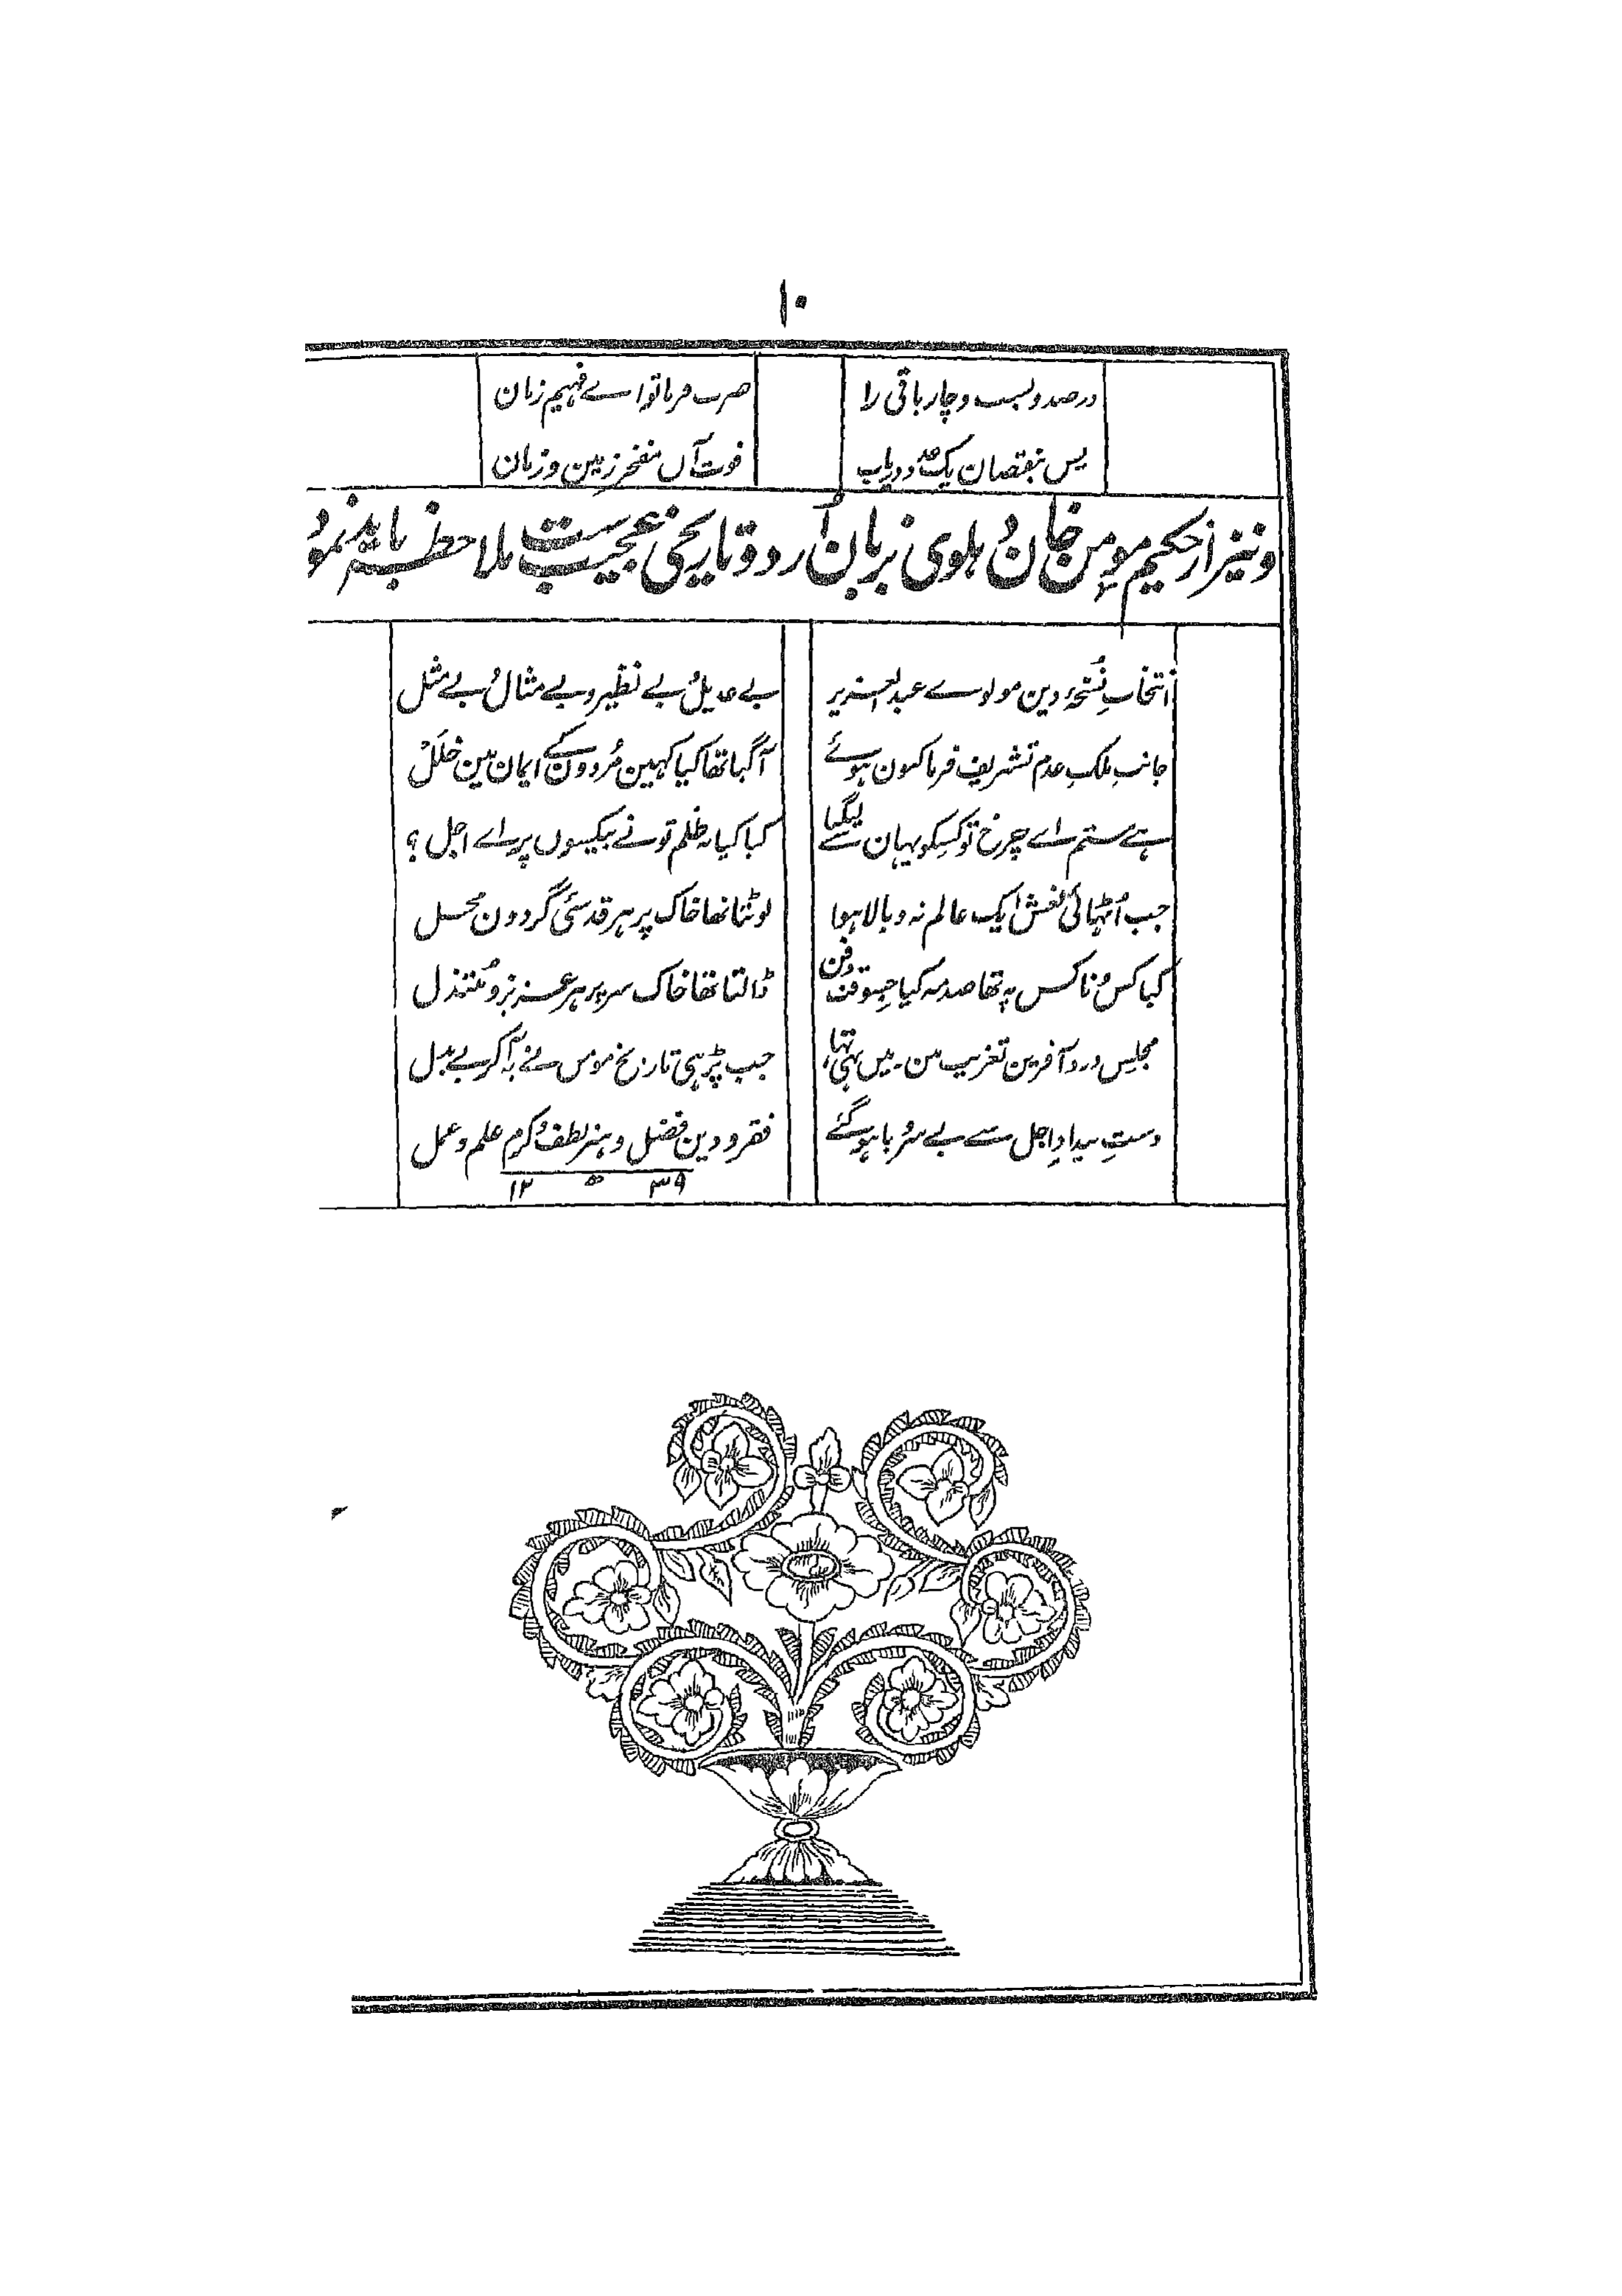 ۱۰
در صد و بست و چار باقی را ضرب فرما تو اے فہیم زمان
پس بنقصان یک عدد دریاب فوت آں مفخر زمین و زمان
و نیز از حکیم مومن خان دہلوی بزبان اُردو تاریخی عجیب ست ملاحظہ باید نمود
اُنتخابِ نُسخۂ دین مولوے عبدالعزیز بے عدیل و بے نظیر و بے مثال و بے مثل
جانبِ ملکِ عدم تشریف فرما کیون ہوئے آگیا تھا کیا کہین مُردون کے ایمان مین خلَلْ
ہے ستم اے چرخ تو کسکو یہان سے لیگیا کیا کیا یہ ظلم تو نے بیکسوں پر اے اجل ؟
جب اُٹہائی نعش ایک عالم تہ و بالا ہوا لوٹتا تھا خاک پر ہر قدسئی گردون محل
کیا کس و ناکس پہ تھا صدمہ کیا جسوقت دفن ڈالتا تھا خاک سر پر ہر عزیز و مُتبذل
مجلس درد آفرین تعزیت مین ۔ میں بھی تھا، جب پڑہی تاریخ مومن نے یہ آکر بے بدل
دستِ بیدادِ اجل سے بے سر و پا ہو گئے فقر و دین فضل و ہنر لطف و کرم علم و عمل
۱۲ ھ ۳۹